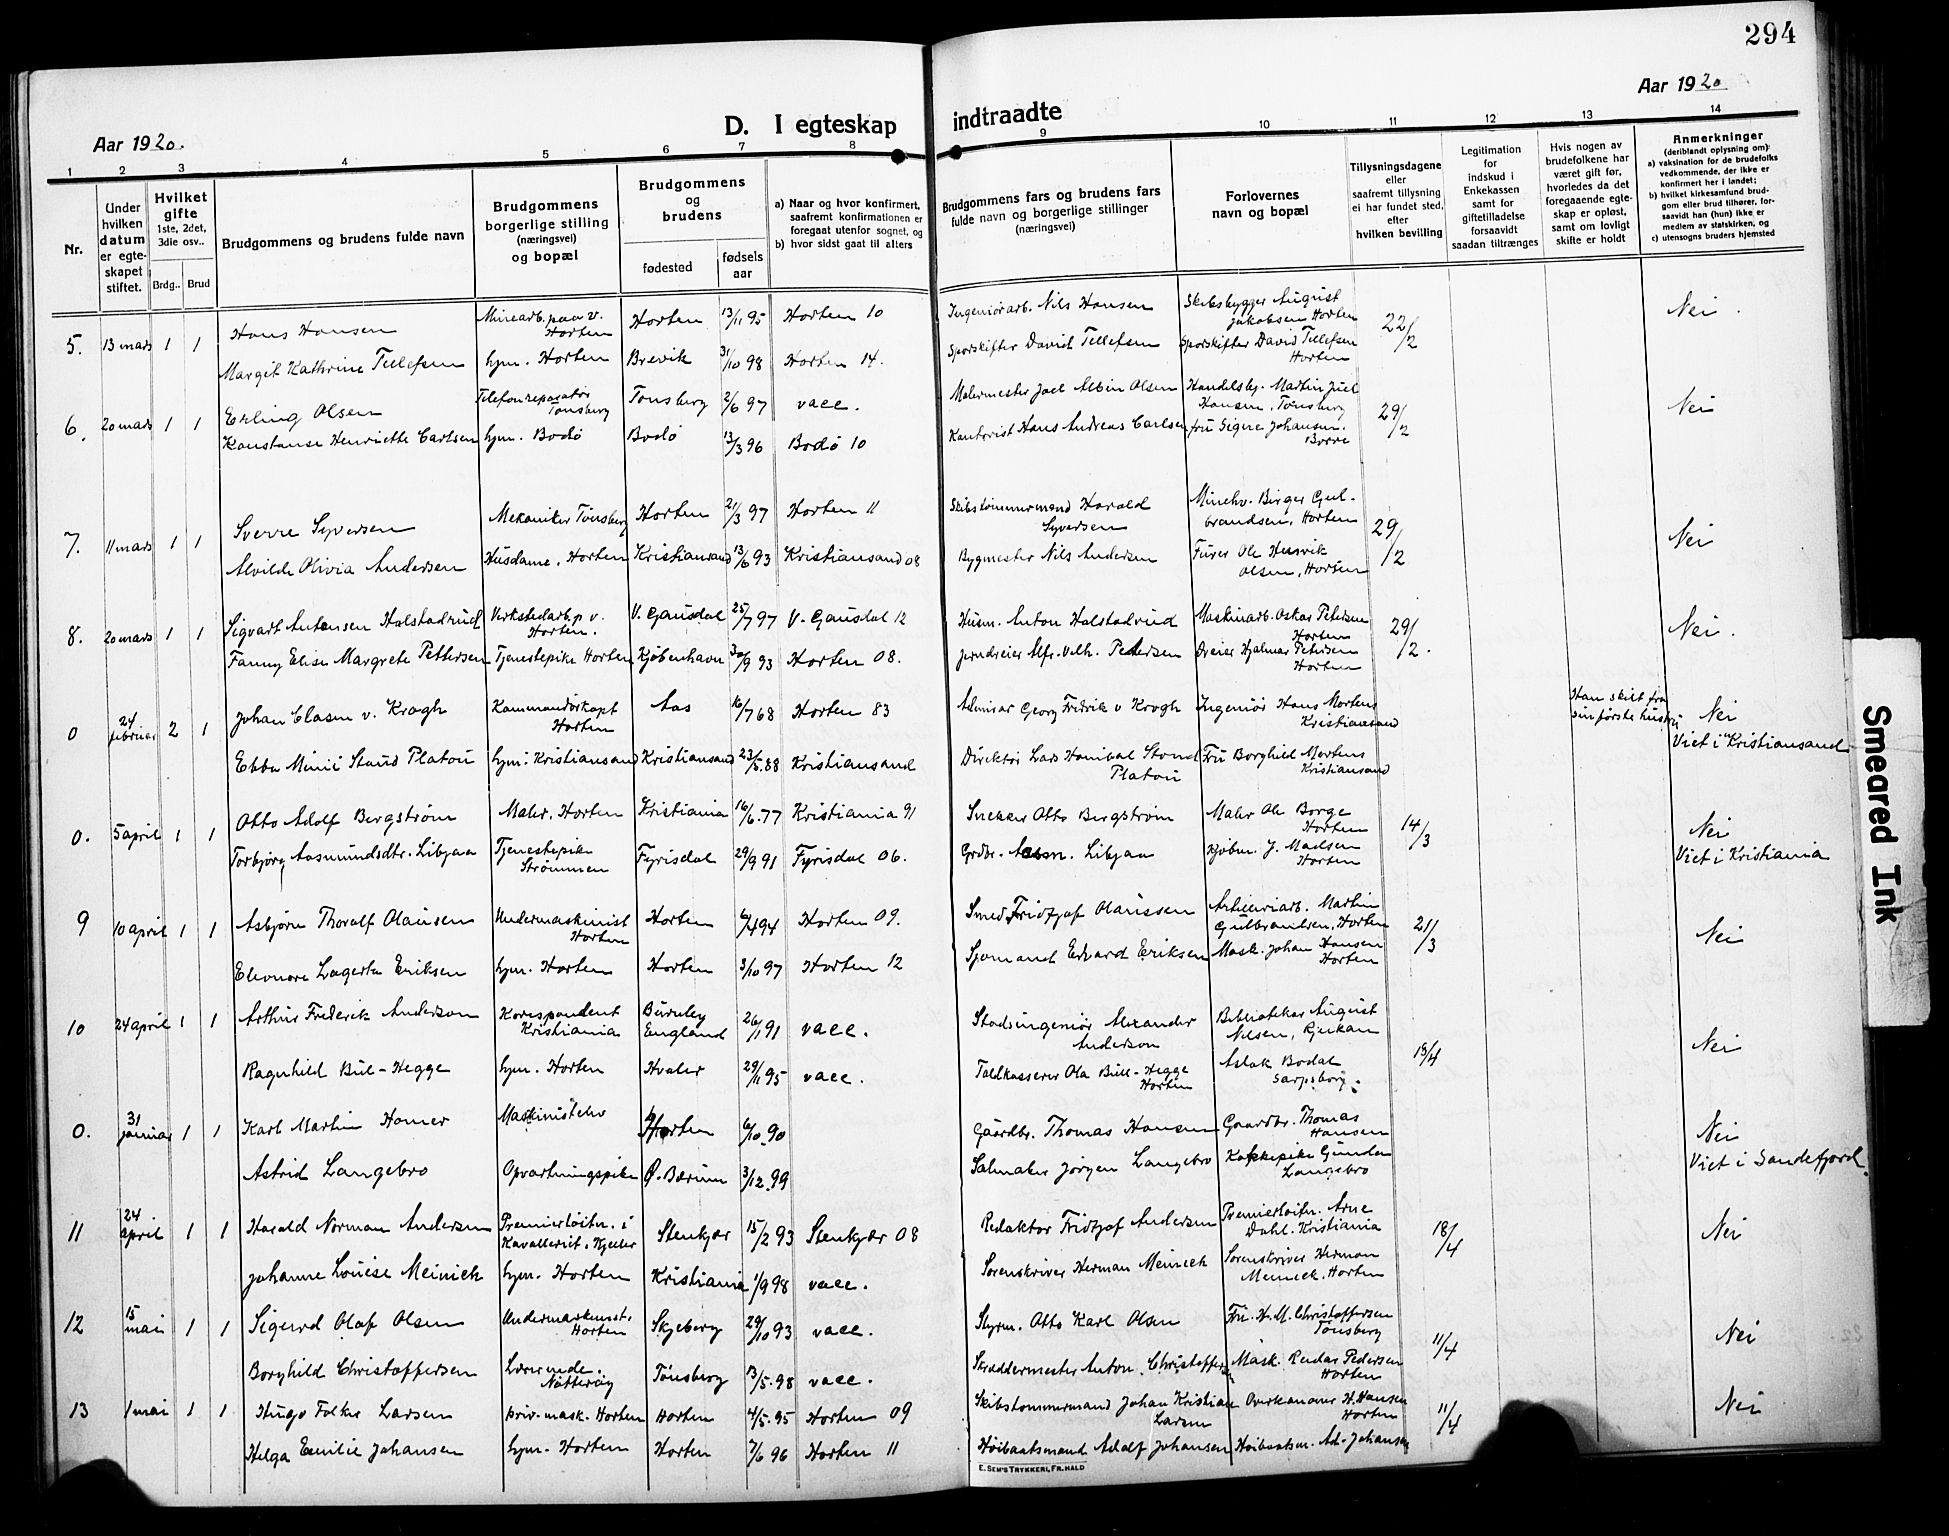 294
Aar 1920.
D. I egteskap
indtraadte
Aar 1920
1 2 3 4 5 6 7 8 9 10 11 12 13 14
Nr.
Under hvilken datum er egte-skapet stiftet.
Hvilket gifte 1ste, 2det, 3die osv..
Brdg..
Brud
Brudgommens og brudens fulde navn
Brudgommens borgerlige stilling (næringsvei) og bopæl
Brudgommens og brudens
fødested
fødsels aar
a) Naar og hvor konfirmert, saafremt konfirmationen er foregaat utenfor sognet, og
b) hvor sidst gaat til alters
Brudgommens fars og brudens fars fulde navn og borgerlige stillinger (næringsvei)
Forlovernes navn og bopæl
Tillysningsdagene eller saafremt tillysning ei har fundet sted, efter hvilken bevilling
Legitimation for indskud i Enkekassen samt for giftetilladelse forsaavidt saadan tiltrænges
Hvis nogen av brudefolkene har været gift før, hvorledes da det foregaaende egte-skap er opløst, samt om lovligt skifte er holdt
Anmerkninger (deriblandt oplysning om):
a) vaksination for de brudefolks vedkommende, der ikke er konfirmert her i landet;
b) hvilket kirkesamfund brud-gom eller brud tilhører, for-saavidt han (hun) ikke er medlem av statskirken, og
c) utensogns bruders hjemsted
5. 13 mars 1 1 Hans Hansen Minearb. paa v. Horten Horten 13/11 95 Horten 10 Ingeniørarb. Nils Hansen Skibsbygger August Jakobsen Horten 22/2 Nei.
Margit Kathrine Tellefsen hjm. Horten Brevik 31/10 98 Horten 14. Sporskifter David Tellefsen Sporskifter David Tellefsen Horten
6. 20 mars 1 1 Erling Olsen Telefonreparatør Tønsberg Tønsberg 2/6 97 vacc. Malermester Joel Albin Olsen Handelsbg. Martin Juel Hansen, Tønsberg 29/2 Nei
Konstanse Henriette Carlsen hjm. Bodø Bodø 13/3 96 Bodø 10 Kontorist Hans Andreas Carlsen fru Signe Johansen. Borre
7. 11 mars 1 1 Sverre Syversen Mekaniker Tønsberg Horten 21/3 97 Horten 11 Skibstømmermand Harald Syversen Minehv. Birger Gul-brandsen, Horten 29/2 Nei
Alvilde Olivia Andersen Husdame, Horten Kristiansand 13/6 93 Kristiansand 08 Bygmester Nils Andersen Furer Ole Husvik Olsen, Horten
8. 20 mars 1 1 Sigvart Antonsen Halstadrud Verkstedarb. p v. Horten. V. Gausdal 25/7 97 V. Gausdal 12 Husm. Anton Halstadrud Maskinarb. Oskar Petersen Horten 29/2. Nei.
Fanny Elise Margrete Pettersen Tjenestepike Horten Kjøbenhavn 30/9 93 Horten 08. Jerndreier Alfr. Vilh. Petersen Dreier Hjalmar Petersen Horten
0 24 februar 2 1 Johan Clasen v. Krogh Kommandørkapt Horten Aas 16/7 68 Horten 83 Georg Fredrik v Krogh Ingeniør Hans Mortens Kristiansand Han skilt fra sin første hustru Nei Viet i Kristiansand
Ebba Minie Stoud Platou hjm: Kristiansand Kristiansand 23/5.88 Kristiansand Direktør Lars Hanibal Stoud Platou Fru Borghild Mortens Kristiansand
0. 5 april 1 1 Otto Adolf Bergstrøm Maler, Horten Kristiania 16/6.77 Kristiania 91 Snekker Otto Bergstrøm Maler Ole Borge Horten 14/3 Nei Viet i Kristiania
Torbjørg Aasmundsdtr. Libjaa Tjenestepike Strømmen Fyrisdal 29/9 91 Fyrisdal 06. Grdbr. Aasm. Libjaa Kjøbm. J. Madsen Horten
9 10 april 1 1 Asbjørn Thoralf Olausen Undermaskinist Horten Horten 6/4 94 Horten 09. Smed Fridtjof Olaussen Artilleriarb. Martin Gulbrandsen, Horten 21/3 Nei
Eleonore Lagerta Eriksen hjm. Horten Horten 3/10 97 Horten 12 Sjømand Edvard Eriksen Mask. Johan Hansen Horten
10 24 april 1 1 Arthur Frederik Anderson Korespondent Kristiania Burnley England 26/1 91 vacc. Stadsingeniør Alexander Anderson Bibliotekar August Nilsen, Rjukan 18/4 Nei
Ragnhild Bull-Hegge hjm. Horten Hvaler 29/11 95 vacc. Toldkasserer Ola Bull-Hegge Horten Aslak Bodal Sarpsborg.
0. 31 januar 1 1 Karl Martin Homer Maskinistelev Horten 6/10.90 Gaardbr. Thomas Hansen Gaardbr. Thomas Hansen Nei Viet i Sandefjord.
Astrid Langebro Opvartningspike Ø. Bærum 3/12.99 Salmaker Jørgen Langebro Kokkepike Gunda Langebro
11 24 april 1 1 Harald Norman Andersen Premierløitn. i Kavalleriet, Kjeller Stenkjær 15/2 93 Stenkjær 08 Redaktør Fridtjof Andersen Premierløitn. Arne Dahl. Kristiania 18/4 Nei
Johanne Louise Meinich hjm. Horten Kristiania 1/9 98 vacc. Sorenskriver Herman Meinich Sorenskriver Herman Meinich. Horten
12 15 mai 1 1 Sigurd Olaf Olsen Undermaskinist, Horten Skjeberg 29/10 93 vacc. Styrm. Otto Karl Olsen Fru. H. M. Christoffersen Tønsberg 11/4 Nei
Borghild Christoffersen Lærerinde. Nøtterøy Tønsberg 13/5.98 vacc. Skræddermester Anton. Christoffersen Mask. Reidar Pedersen Horten
13 1 mai 1 1 Hugo Folke Larsen Priv-mask. Horten Horten 4/5.95 Horten 09 Skibstømmermand Johan Kristian Larsen Overkanoner H. Hansen Horten 11/4 Nei
Helga Emilie Johansen hjm. Horten Horten 7/6 96 Horten 11 Høibaatsmand Adolf Johansen Høibaatsm. Ad. Johansen
E. SEM'S TRYKKERI, FR.HALD
Smeared Ink